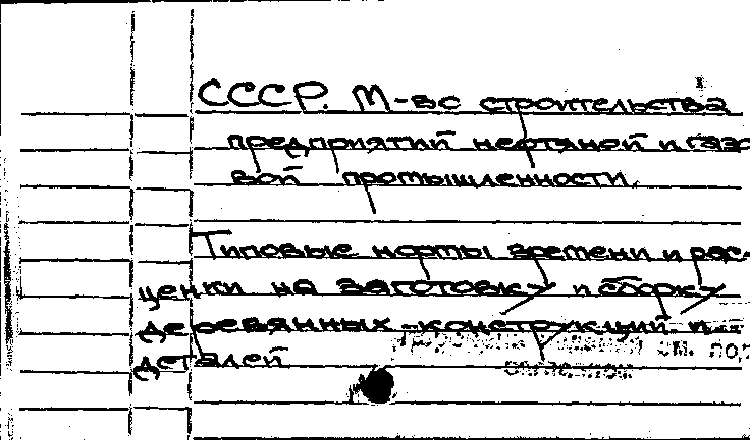 СССР. М-во строительства
предприятий нефтяной и газо
вой промышленности.
Типовые нормы времени и рас-
ценки на заготовку и сборку
деревянных конструкций и
деталей
см. под